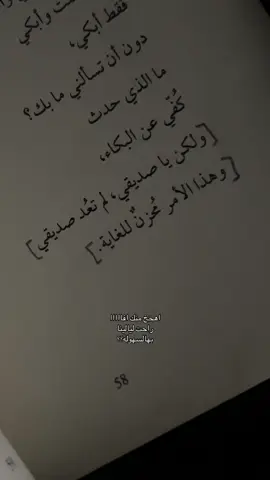 وأبكي
فقط أبكي،
دون أن تسألني ما بك؟
ما الذي حدث
كُفّي عن البكاء،
[ولكن يا صديقي، لم تعُد صديقي]
[وهذا الأمر مُحزنٌ للغاية.]
راحت ليالينا
بهالسهولة؟؟
58